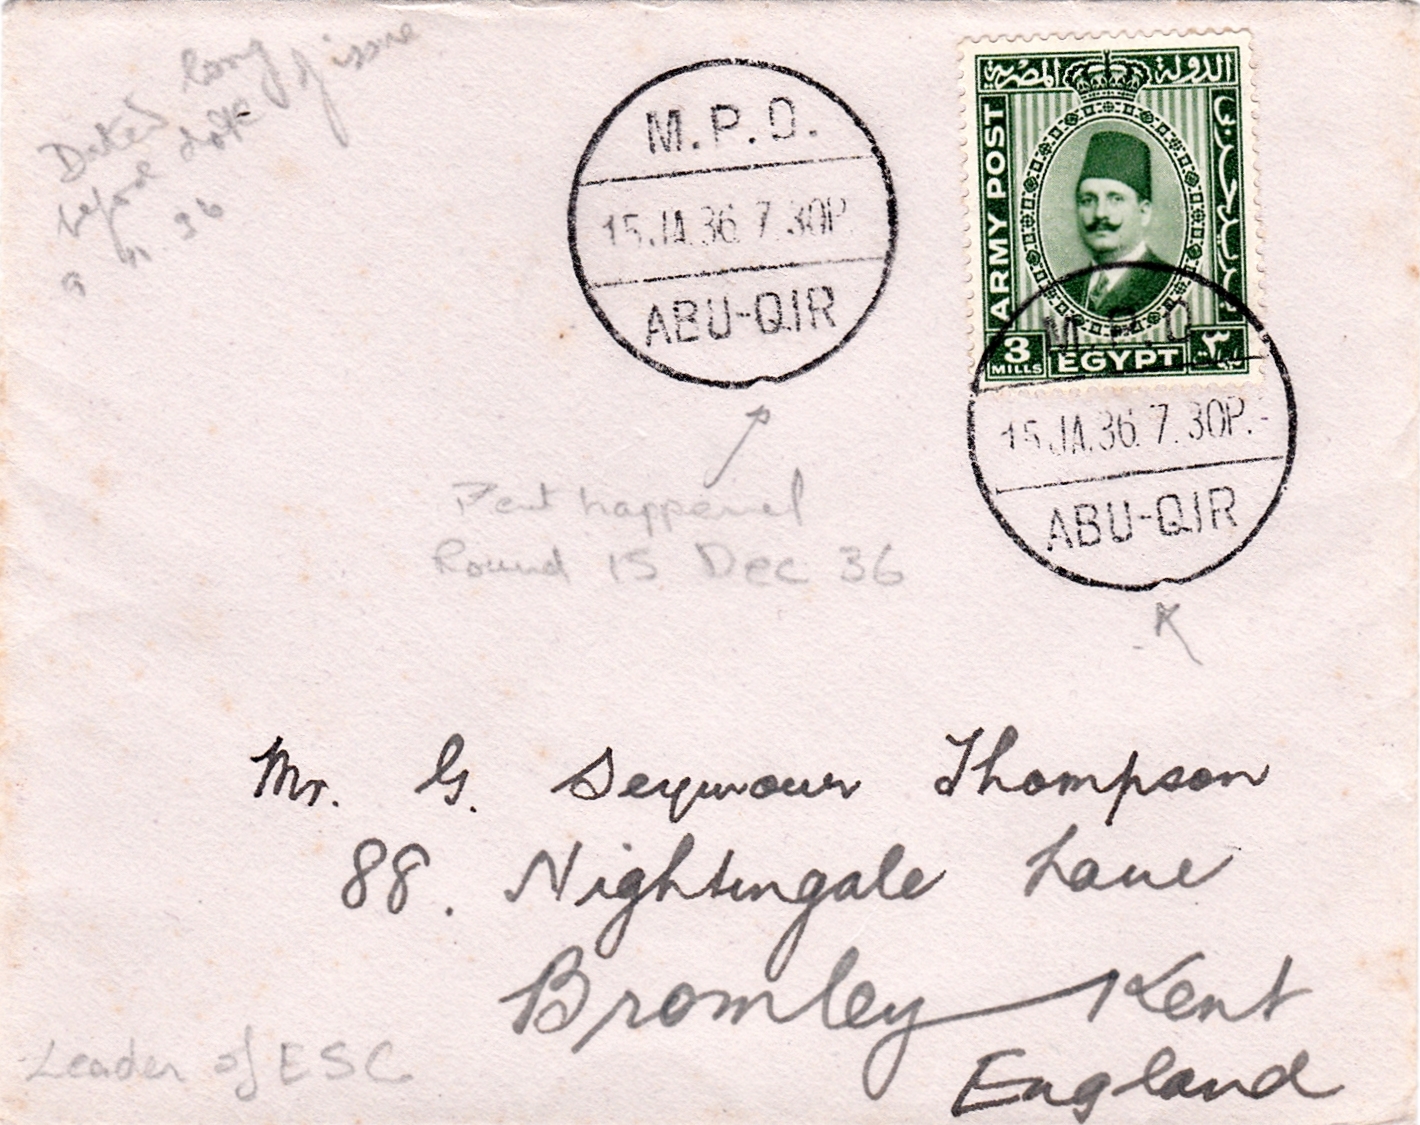 Dated long
before date of issue
9 . 36
M.P.O.
15.JA.36.7.30P.
ABU-QIR
الدولة المصرية
ARMY POST
بريد الجيش
3
MILLS
EGYPT
٣
M.P.O.
15.JA.36.7.30P.
ABU-QIR
Dent happened
Round 15 Dec 36
Mr. G. Seymour Thompson
88. Nightingale Lane
Bromley Kent
England
Leader of ESC